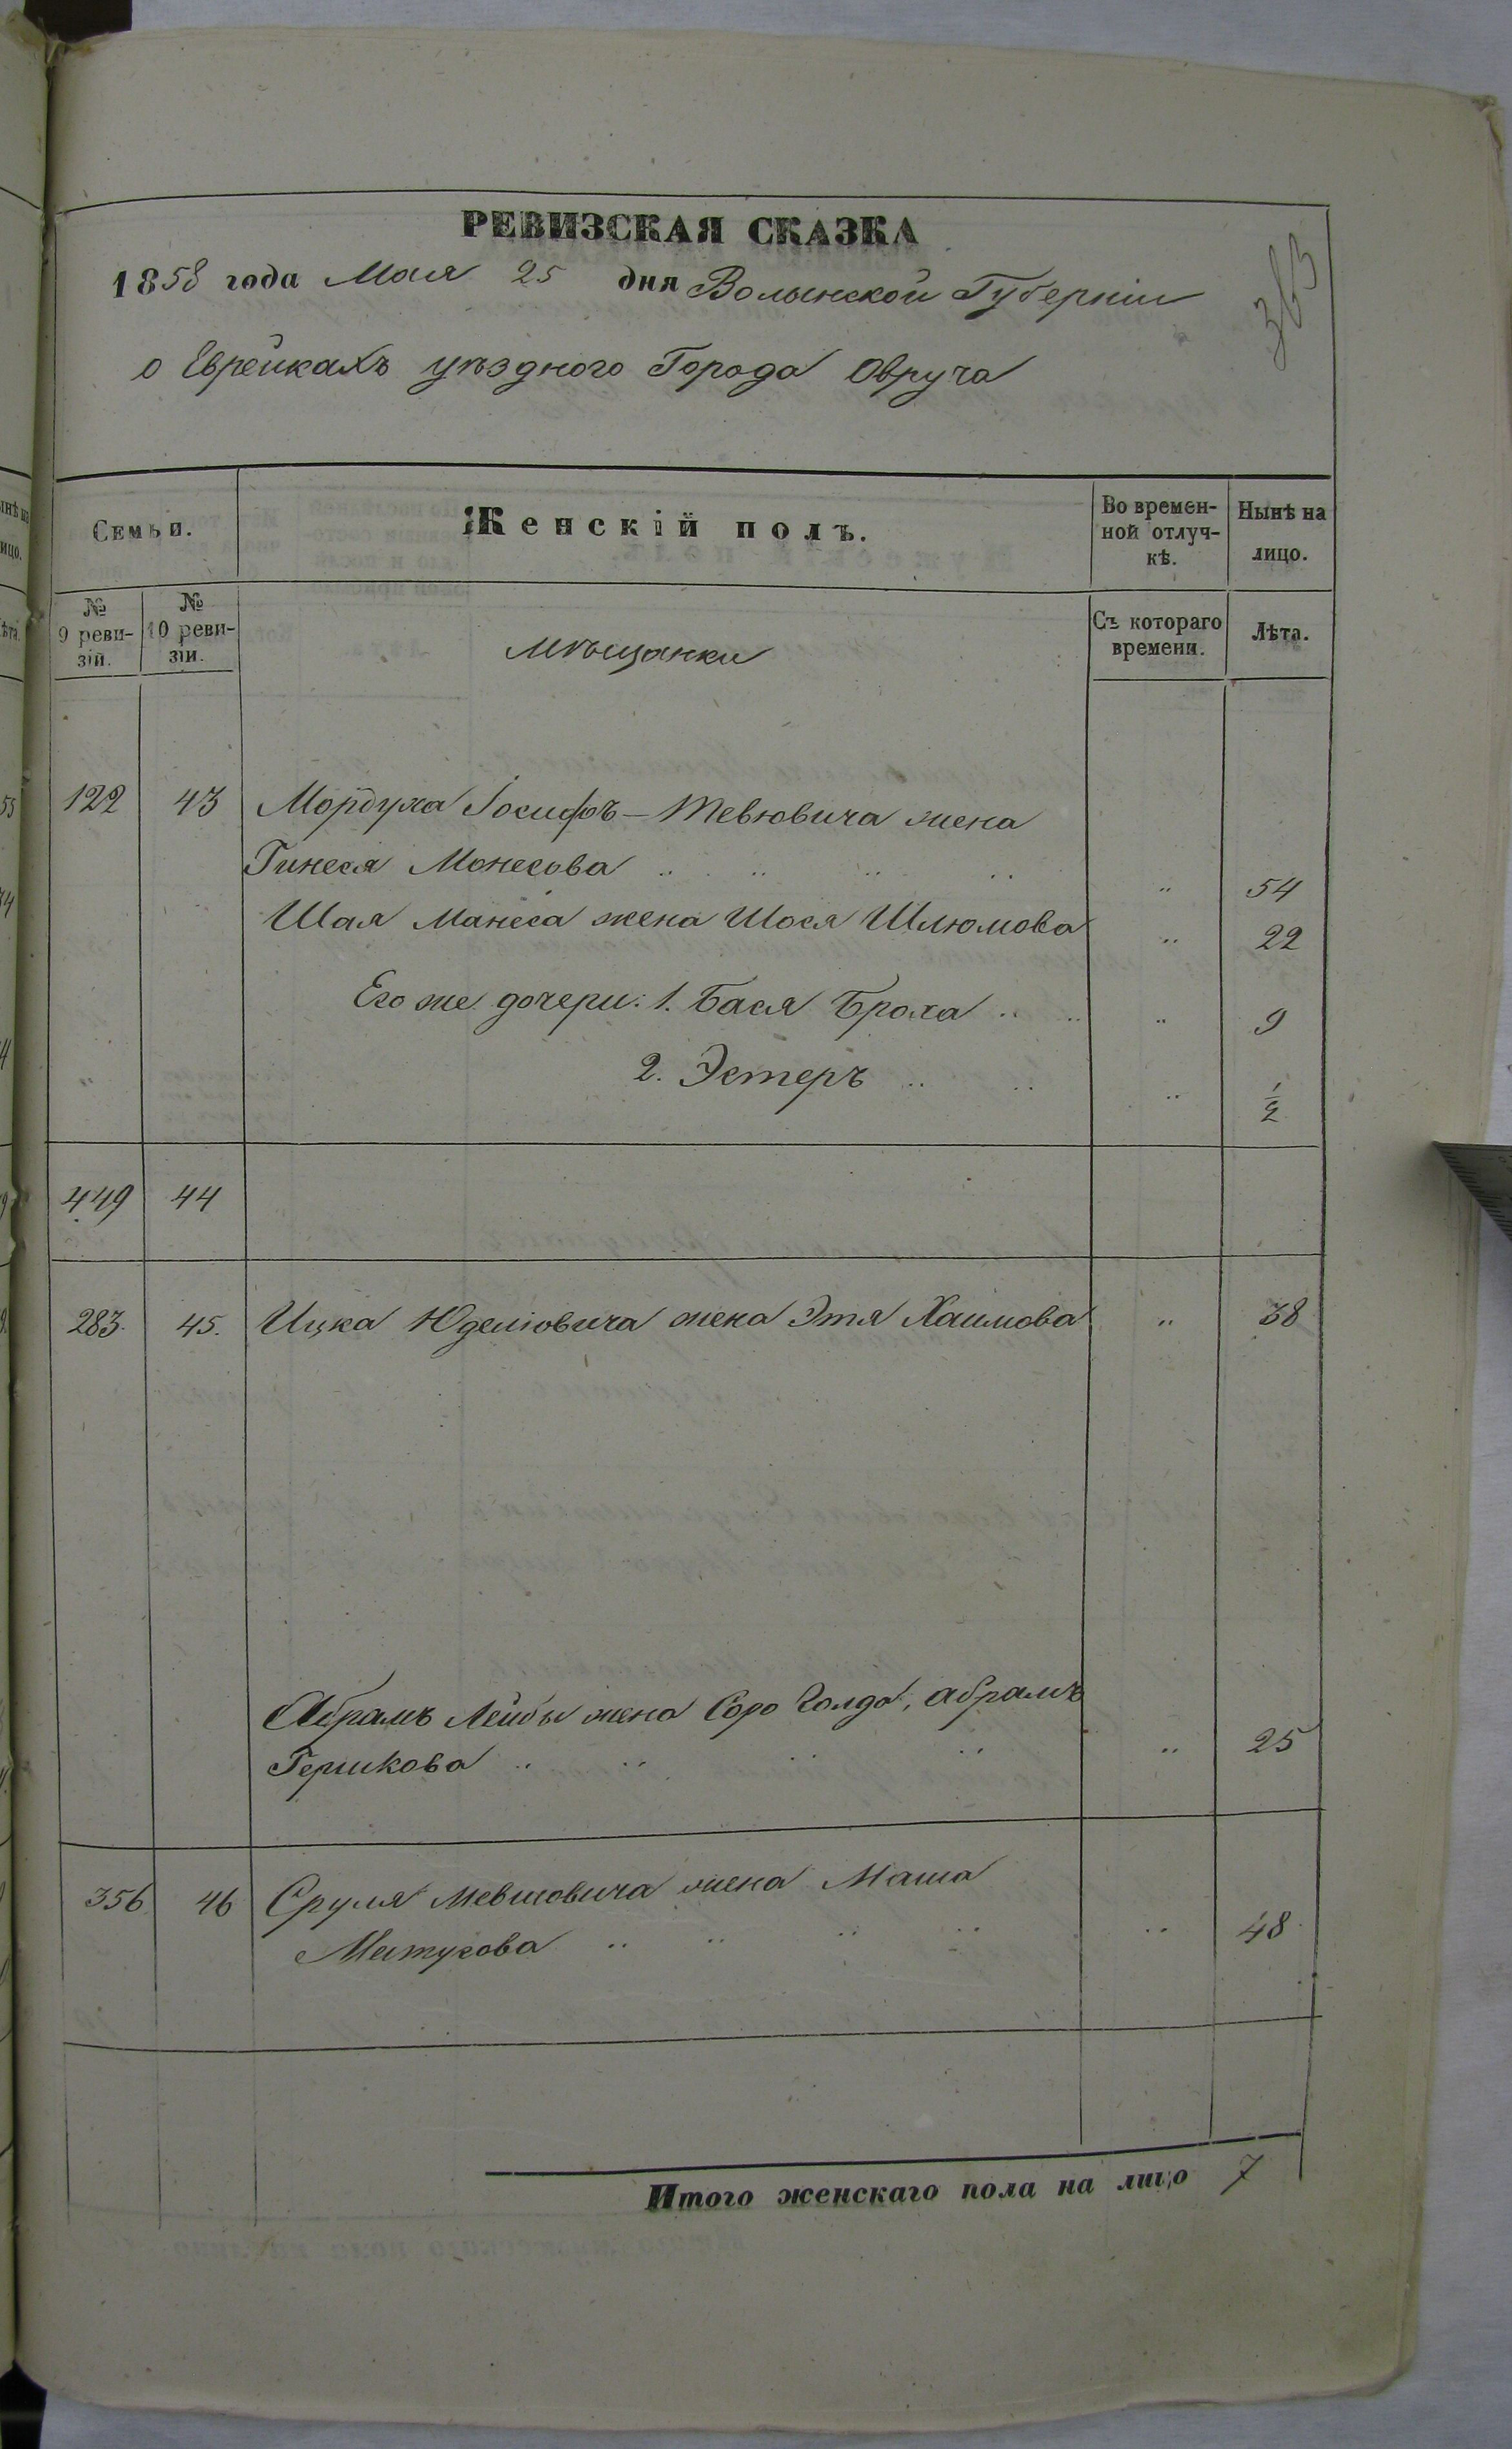 РЕВИЗСКАЯ СКАЗКА
1858 года Мая 25 дня Волынской Губерніи
363
о Еврейкахъ уѣзднаго Города Овруча
Семьи.
Женскій полъ.
Во времен-
ной отлуч-
кѣ.
Нынѣ на
лицо.
№
9 реви-
зіи.
№
10 реви-
зіи.
Мѣщанки
Съ котораго
времени.
Лѣта.
122 43 Мордуха Іосифъ-Тевювича жена
Гинеся Монесова .. .. .. .. .. 54
Шая Манеса жена Шося Шлюмова .. 22
Его же дочери: 1. Бася Броха .. .. .. 9
2. Эстеръ .. .. .. 1/2
449 44
283. 45. Ицка Юделіовича жена Этя Хаимова .. 38
Абрамъ Лейбы жена Соро Голда, Абрамъ
Гершкова .. .. .. .. .. 25
356 46 Сруля Мевшовича жена Маша
.. .. .. .. .. 48
Итого женскаго пола на лицо 7